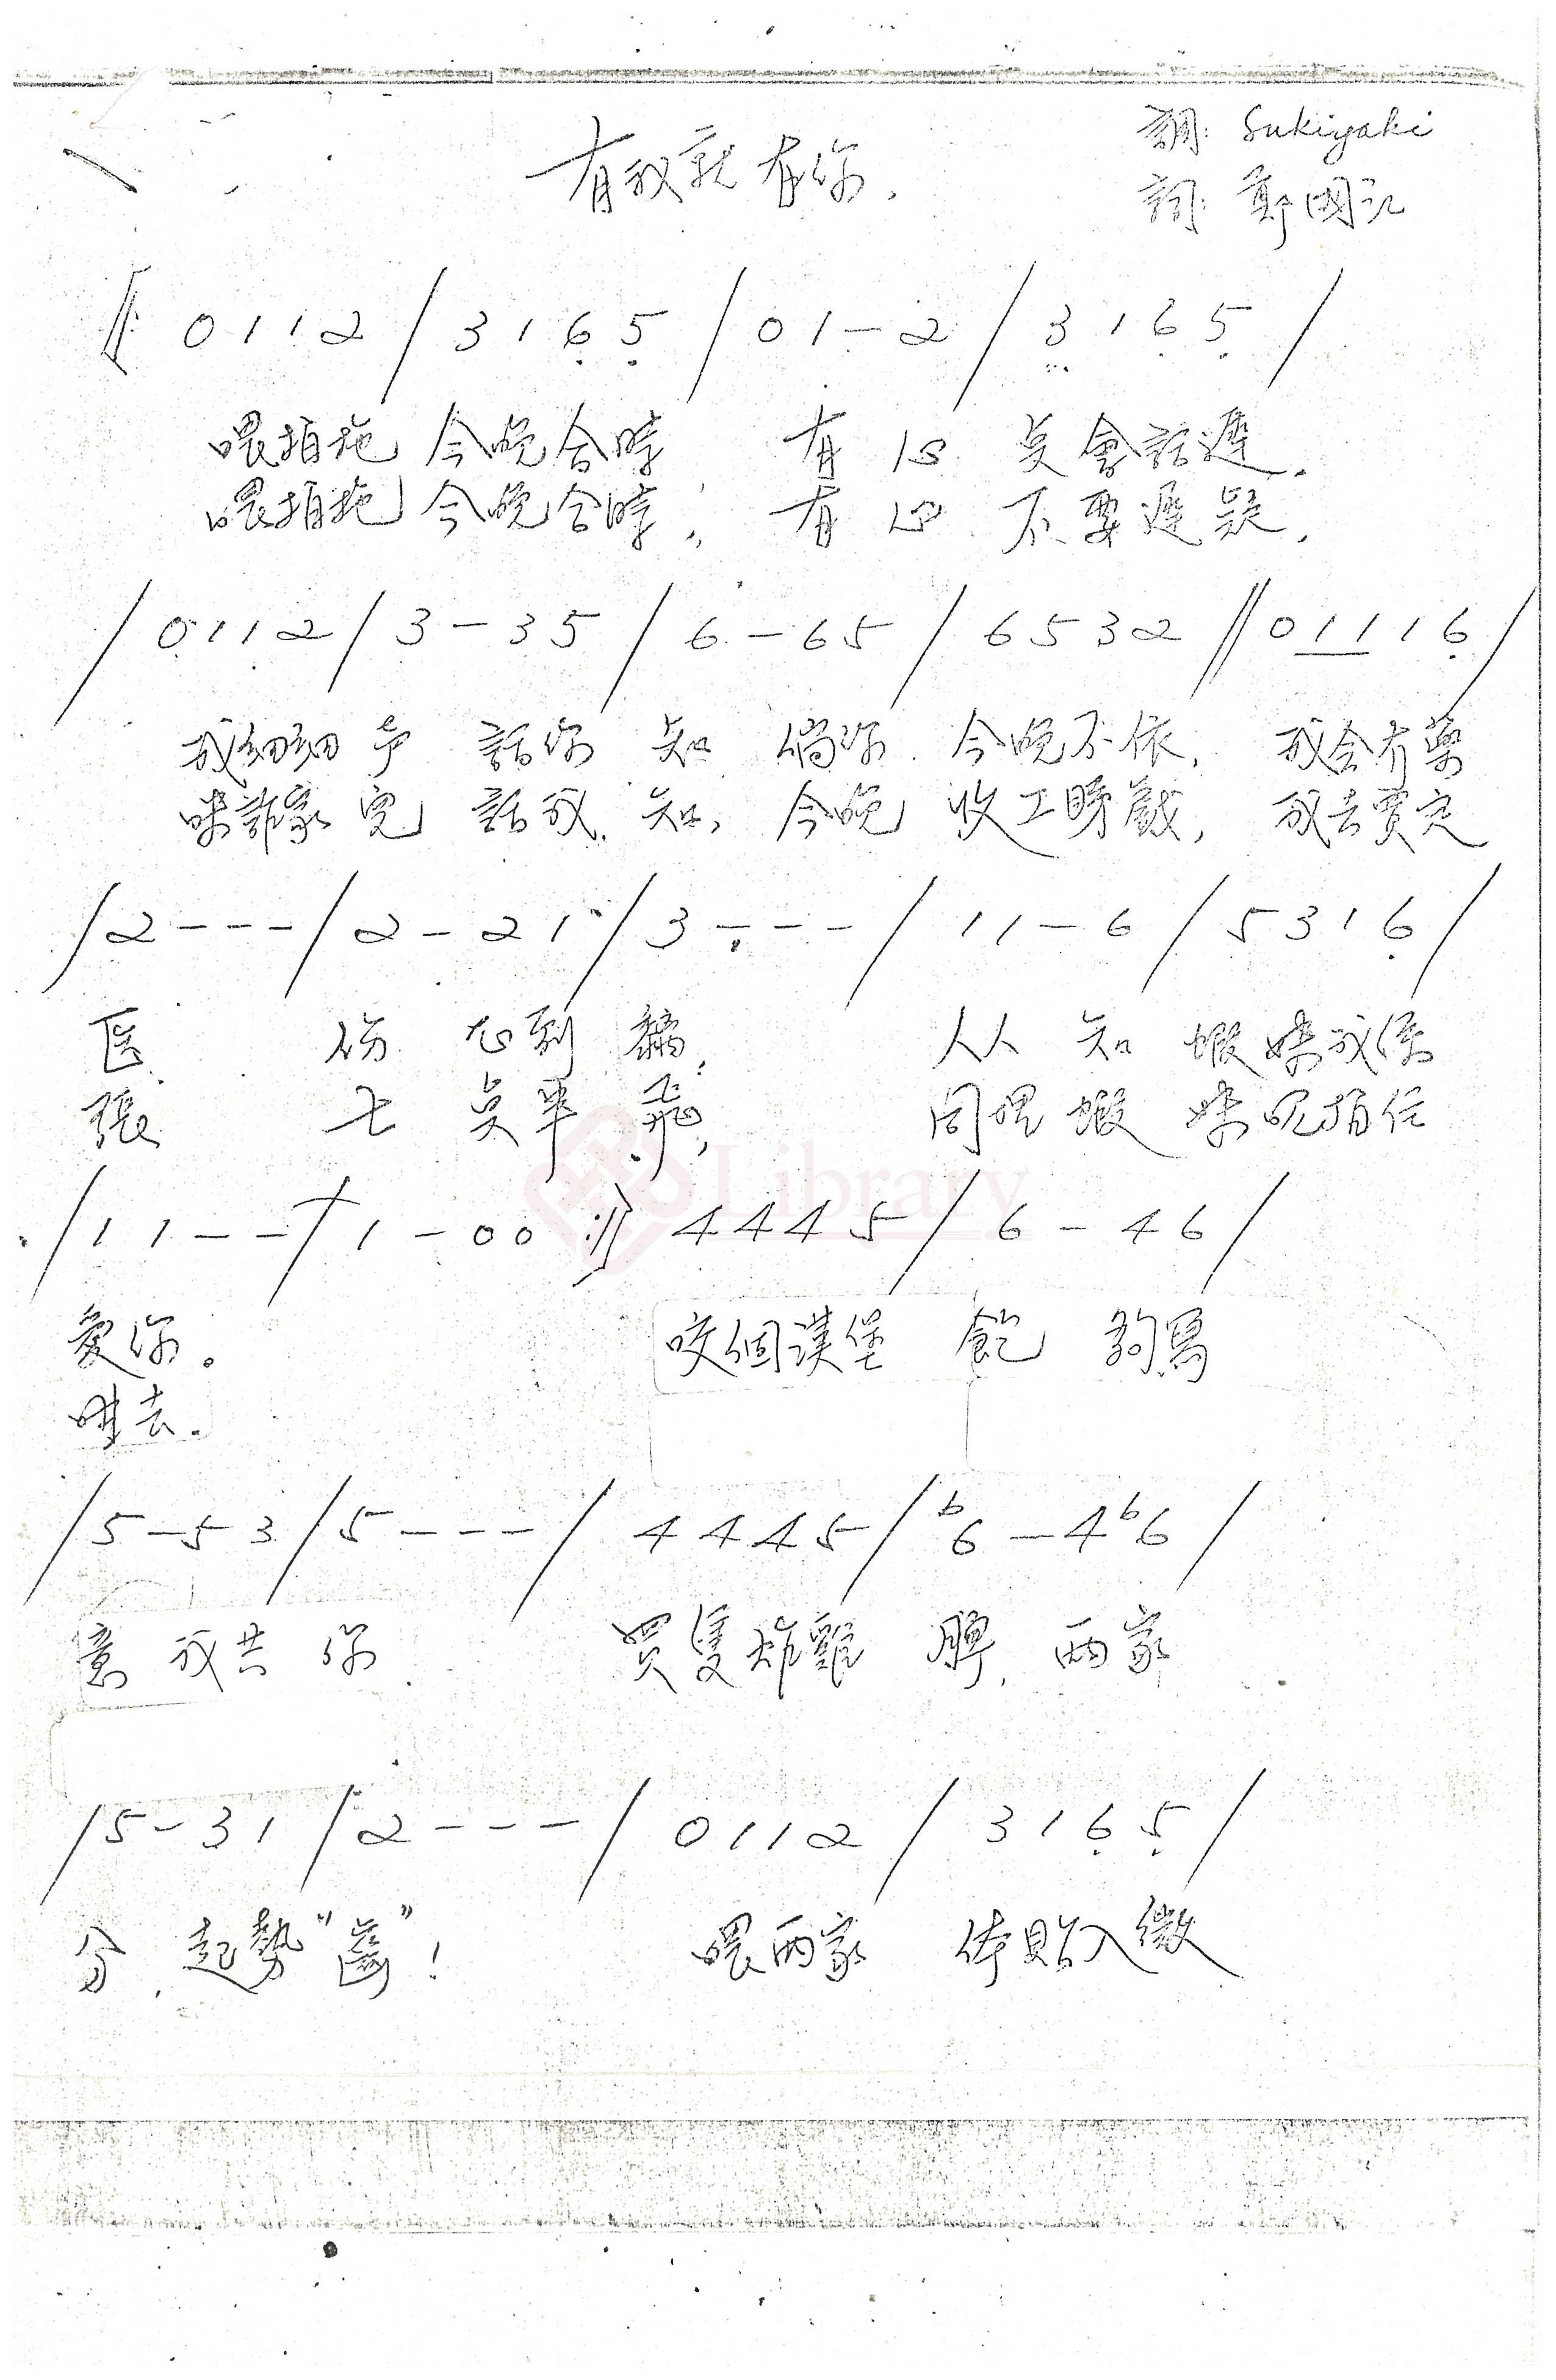 有我就有你.
調: Sukiyaki
詞: 鄭國江
‖: 0 1 1 2 / 3 1 6̣ 5̣ / 0 1 - 2 / 3 1 6̣ 5̣ /
喂拍拖 今晚合時 有 心 点會話遲.
喂拍拖 今晚合時, 有 心 不要遲疑.
/ 0 1 1 2 / 3 - 3 5 / 6 - 6 5 / 6 5 3 2 // 0 1 1 1 6̣ /
我細細声 話你 知 倘你 今晚不依, 我会冇藥
咪詐家完 話我 知, 今晚 收工睇戲, 我去買定
/ 2 - - - / 2 - 2 1 / 3 - - - / 1 1 - 6 / 5 3 1 6̣ /
医 傷 心到 黐, 人人 知 蝦妹我係
張 七 点半 飛, 同埋 蝦 妹吔拍住
/ 1 1 - - / 1 - 0 0 :‖ 4 4 4 5 / 6 - 4 6 /
愛你。 咬個漢堡 飽 夠寫
咁去.
/ 5 - 5 3 / 5 - - - / 4 4 4 5 / ♭6 - 4 ♭6 /
意 我共 你 買隻炸雞 髀, 両家
/ 5 - 3 1 / 2 - - - / 0 1 1 2 / 3 1 6̣ 5̣ /
分, 起勢"嚙"! 喂両家 体貼入微
Library